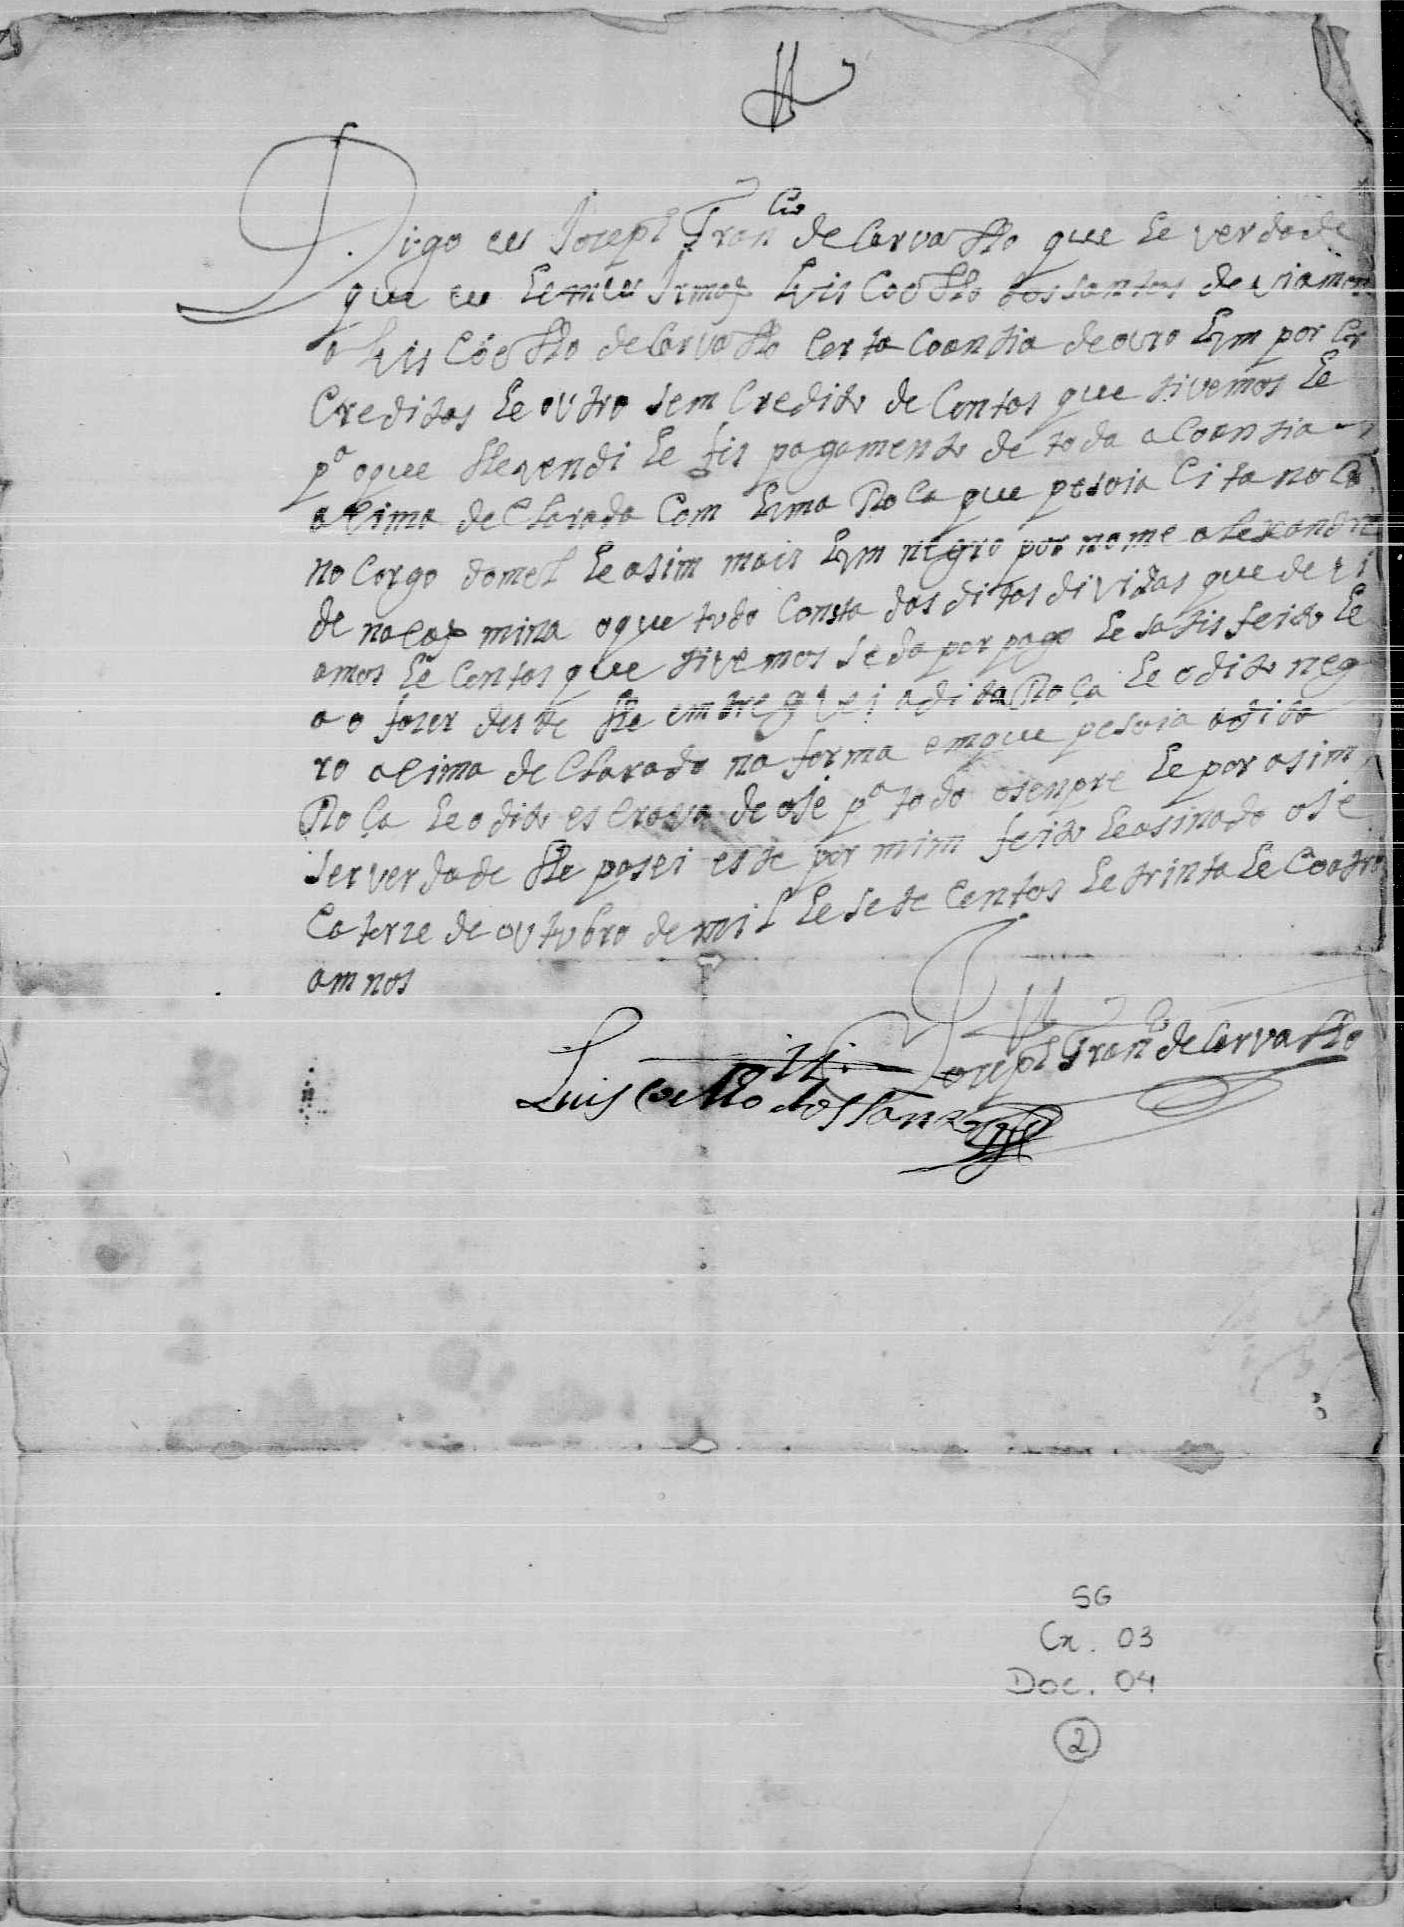 Digo eu Joseph Fran.co de Carvalho que he verdade
que eu he meu Irmaõ Luis Coelho dos santos deviamos
a Luis Coelho de Carvalho Certa Coantia de ouro hum por
Creditos he outro sem Credito de Contos que tivemos he
p.a o que lhe vendi he fis pagamento de toda a Coantia
asima de Clarada Com huma Rosa que pesoia Cita no
no Corgo do mel he asim mais hum negro por nome alexandre
de nasaõ mina o que tudo Consta das ditas dividas que devi
amos he Contas que tivemos se da por pago he satisfeito he
ao fazer deste lhe entreguei a dita Roça he o dito neg
ro asima de Clarado na forma em que pesoia a dita
Roça he o dito escravo de oje p.a todo o senpre he por asim
ser verdade lhe pasei este por mim feito he asinado oje
Catorze de outubro de mil he sete Centos he trinta he Coatro
amnos
Joseph Fran.co de Carvalho
Luis Coelho dos Santos
SG
Cx. 03
Doc. 04
2